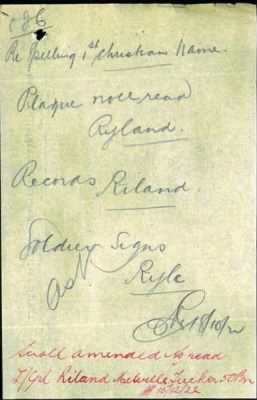 Re Spelling 1st Christian Name.
Plaque roll read
Ryland.
Records Riland.
Soldier Signs
Ask
Ryle
18/10/22
Scroll amended to read
L/Cpl Riland Melville Tucker 50 Bn
16/12/22